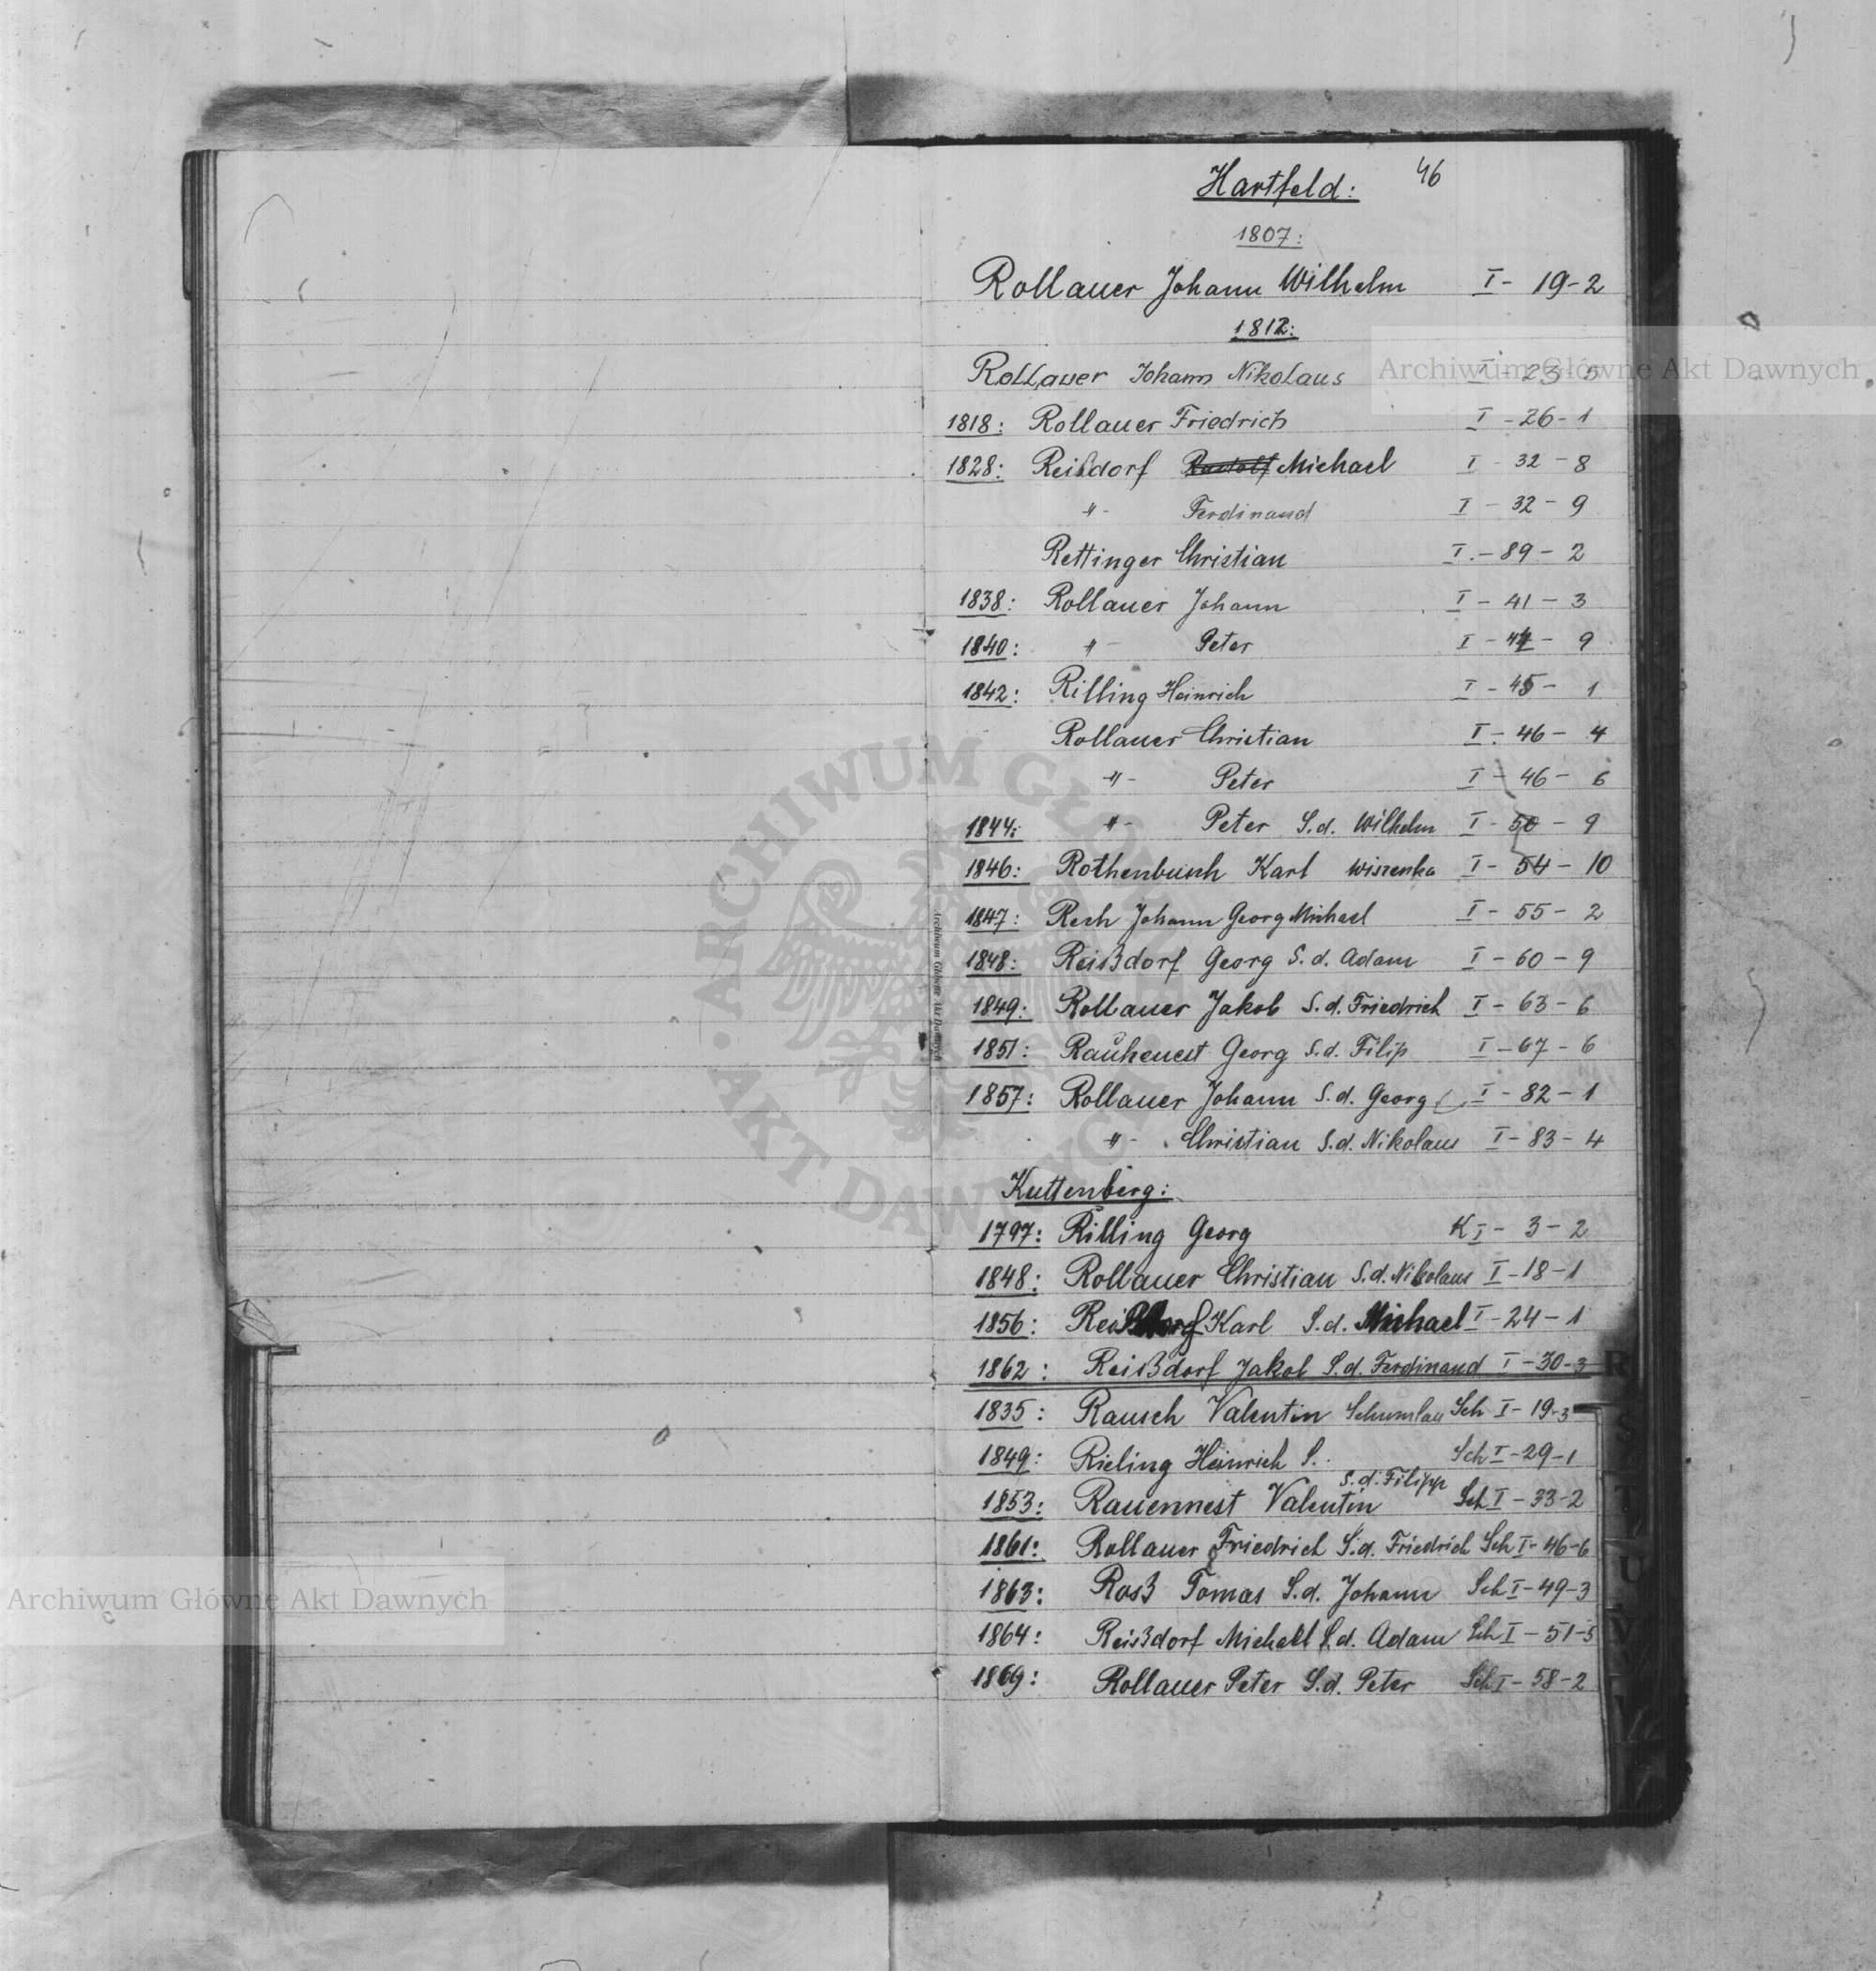 46
Hartfeld:
1807:
Rollauer Johann Wilhelm I- 19-2
1812:
Rollauer Johann Nikolaus I - 23 5
1818: Rollauer Friedrich I -26-1
1828: Reißdorf Rudolf Michael I - 32 - 8
-"- Ferdinand I - 32 - 9
Rettinger Christian I.-89-2
1838: Rollauer Johann I - 41 - 3
1840: -"- Peter I - 44 - 9
1842: Rilling Heinrich I - 45 - 1
Rollauer Christian I - 46 - 4
-"- Peter I - 46 - 6
1844: -"- Peter S.d. Wilhelm I - 50 - 9
1846: Rothenbusch Karl Wiszenka I - 54 - 10
1847: Rech Johann Georg Michael I - 55 - 2
1848: Reißdorf Georg S.d. Adam I - 60 - 9
1849: Rollauer Jakob S.d. Friedrich I - 63 - 6
1851: Rauhenest Georg S.d. Filip I - 67 - 6
1857: Rollauer Johann S.d. Georg I - 82 - 1
-"- Christian S.d. Nikolaus I - 83 - 4
Kuttenberg:
1797: Rilling Georg K I - 3 - 2
1848: Rollauer Christian S.d. Nikolaus I - 18 - 1
1856: Reißdorf Karl S.d. Michael I - 24 - 1
1862: Reißdorf Jakob S.d. Ferdinand I - 30 - 3
1835: Rausch Valentin Schumlau Sch I - 19-3
1849: Rieling Heinrich S.. Sch I - 29-1
S.d. Filipp
1853: Rauennest Valentin Sch I - 33-2
1861: Rollauer Friedrich S.d. Friedrich Sch I - 46-6
1863: Roß Tomas S.d. Johann Sch I - 49-3
1864: Reißdorf Michael S.d. Adam Sch I - 51-5
1869: Rollauer Peter S.d. Peter Sch I - 58-2
R
S
T
U
V
Archiwum Główne Akt Dawnych
Archiwum Główne Akt Dawnych
Archiwum Główne Akt Dawnych
ARCHIWUM GŁÓWNE AKT DAWNYCH